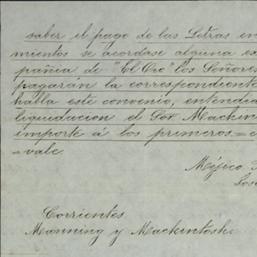 saber el pago de las Letras en
mientos se acordase alguna ex
pañia de "El Oro" los Señores
pagarán la correspondiente
habla este convenio, entendia
liquidacion el Sor Mackin
importe á los primeros = e
= vale.
Méjico
Corrientes
Manning y Mackintosh